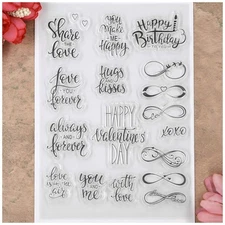 Share
the
love
You
make
me
Happy
Happy
Birthday
Love
you
forever
Hugs
and
kisses
always
and
forever
HAPPY
Valentine's
DAY
XOXO
love
is in the
air
you
and
me
with
love